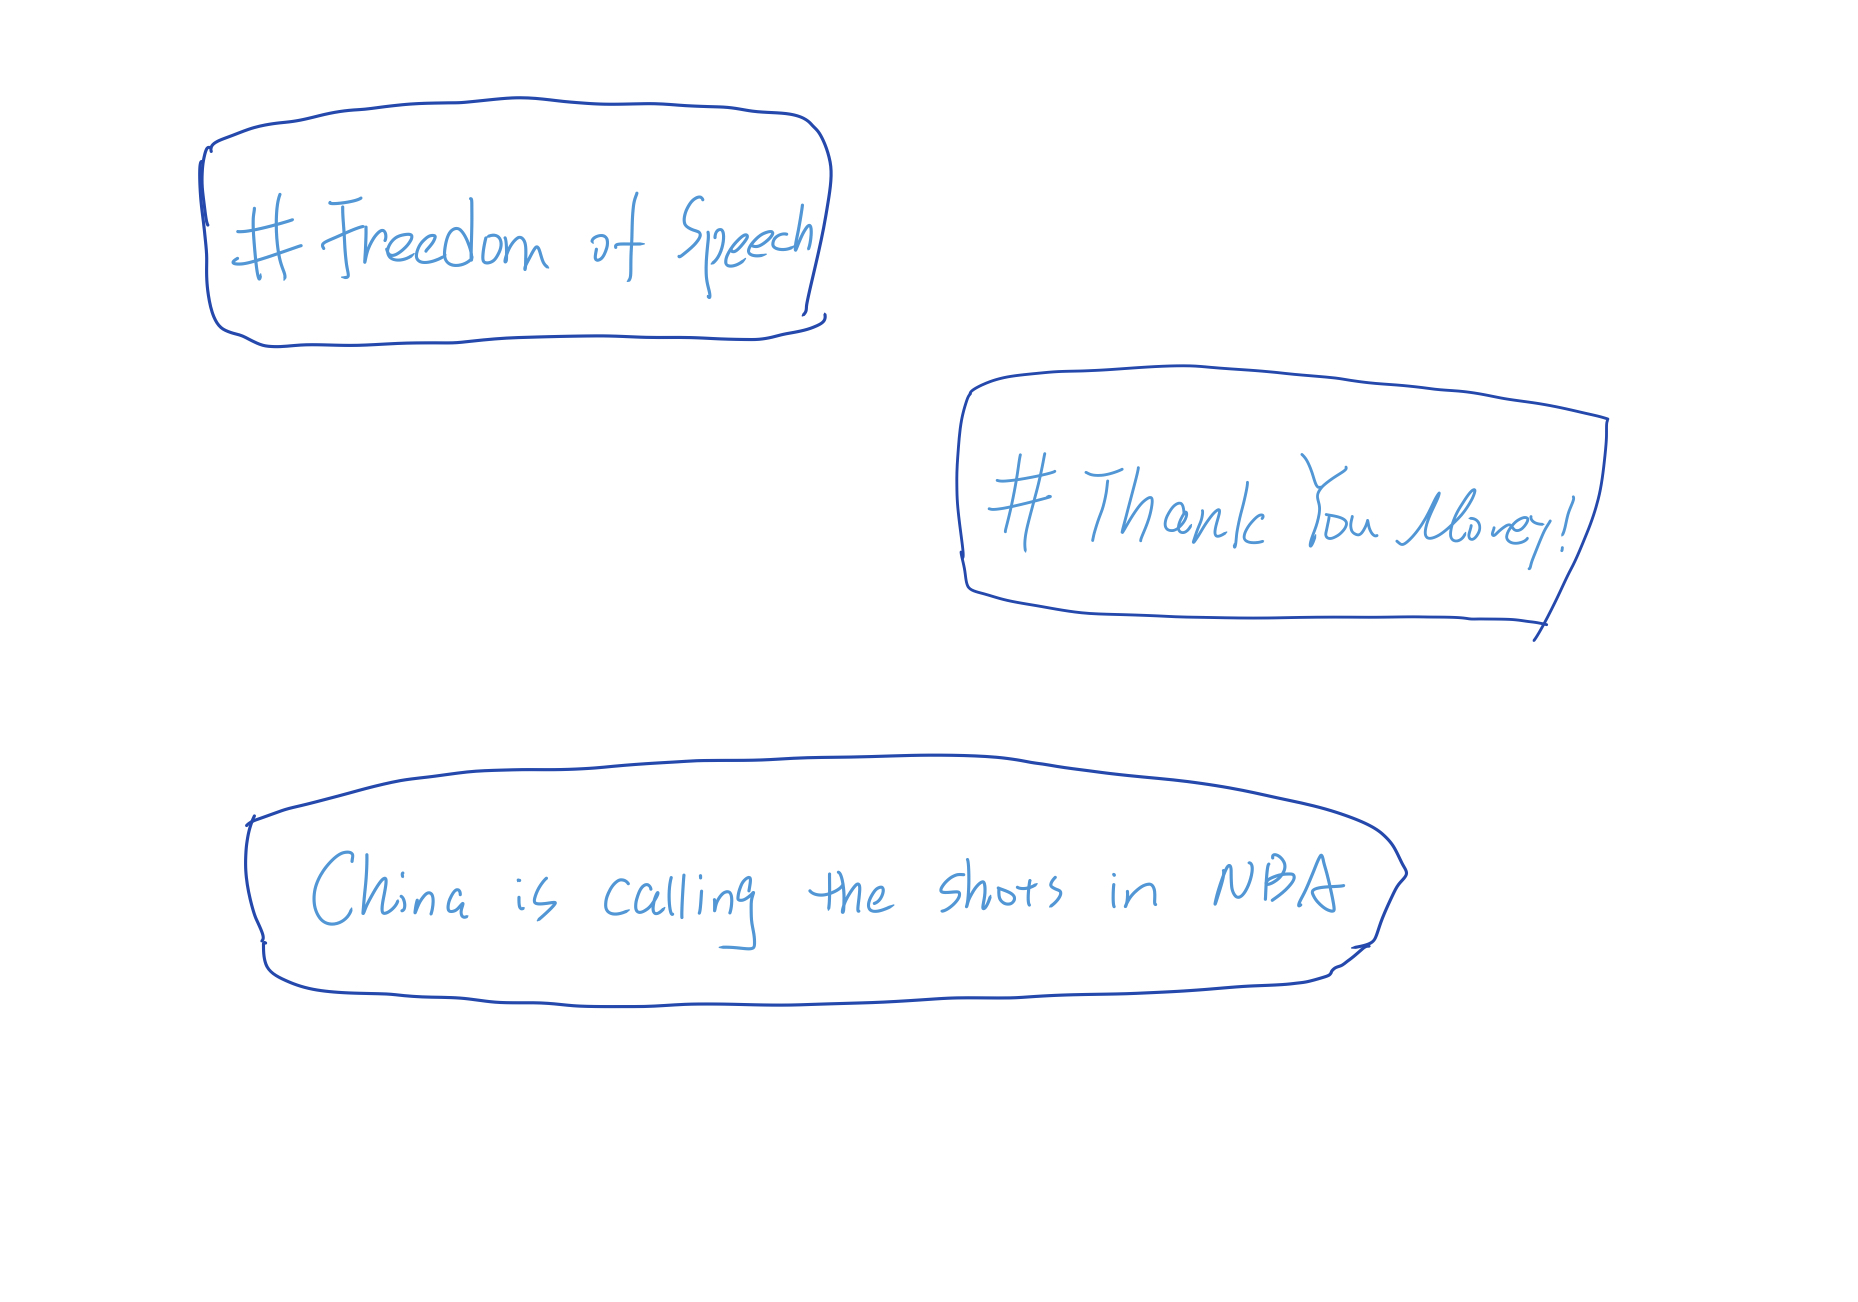 # Freedom of Speech
# Thank You Morey!
China is calling the shots in NBA